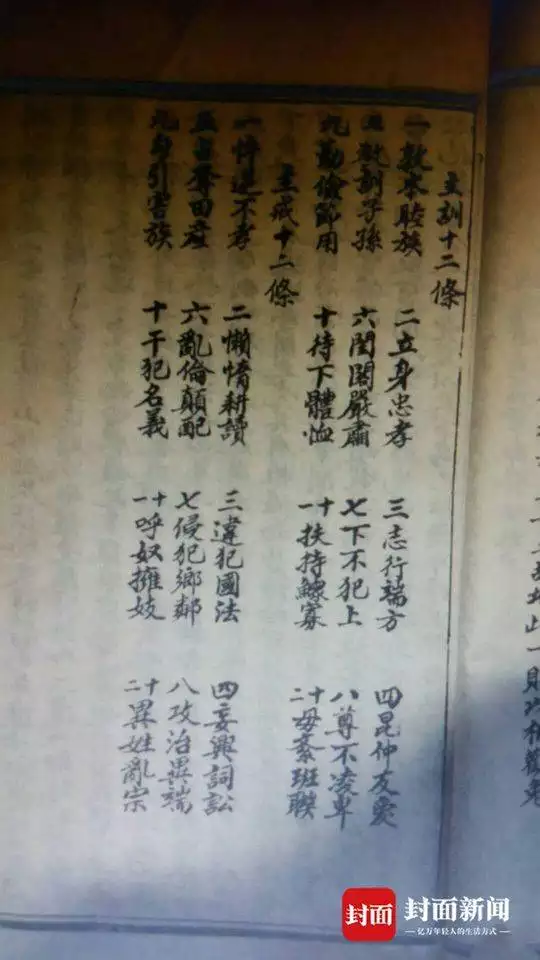 主訓十二條
一敦本睦族 二立身忠孝 三志行端方 四昆仲友愛
五教訓子孫 六閨閣嚴肅 七下不犯上 八尊不凌卑
九勤儉節用 十待下體恤 十一扶持鰥寡 十二毋紊班聯
主戒十二條
一忤逆不孝 二懶惰耕讀 三違犯國法 四妄興詞訟
五占奪田產 六亂倫顛配 七侵犯鄉鄰 八攻治異端
九勾引害族 十干犯名義 十一呼奴擁妓 十二異姓亂宗
封面 封面新闻
亿万年轻人的生活方式